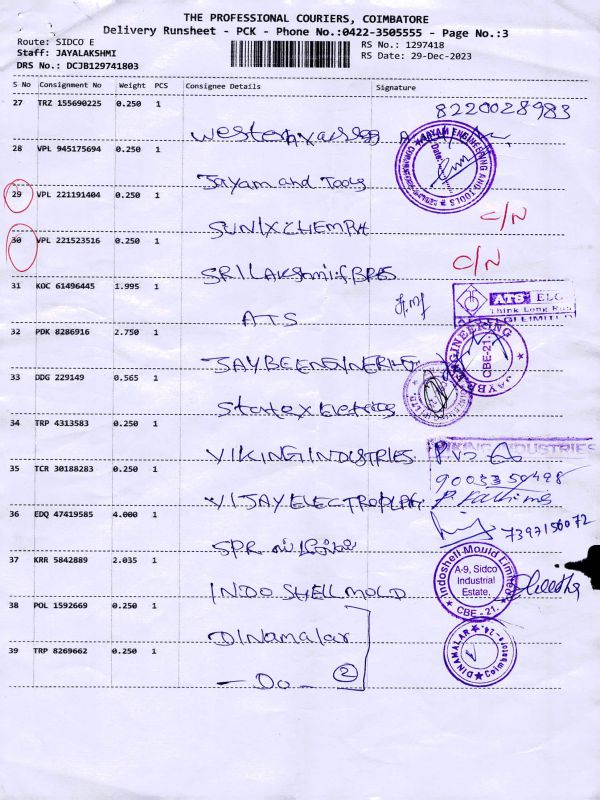 THE PROFESSIONAL COURIERS, COIMBATORE
Delivery Runsheet - PCK - Phone No.:0422-3505555 - Page No.:3
Route: SIDCO E
RS No.: 1297418
Staff: JAYALAKSHMI
RS Date: 29-Dec-2023
DRS No.: DCJB129741803
S No Consignment No Weight PCS Consignee Details Signature
27 TRZ 155690225 0.250 1
8220028983
28 VPL 945175694 0.250 1
Jayam and Tools
29 VPL 221191404 0.250 1
C/N
SUNIXCHEM
30 VPL 221523516 0.250 1
C/N
SRI LAKSHMI
31 KOC 61496445 1.995 1
ATS ELC
Think Long Run
ATS
32 PDK 8286916 2.750 1
CBE-21.
33 DDG 229149 0.565 1
34 TRP 4313583 0.250 1
VIKING INDUSTRIES
VIKING INDUSTRIES
35 TCR 30188283 0.250 1
VIJAY ELECTROPLAT
36 EDQ 47419585 4.000 1
7397156072
SPR
37 KRR 5842889 2.035 1
Indoshell Mould Limited
A-9, Sidco
Industrial
Estate,
CBE - 21.
INDO SHELL MOLD
38 POL 1592669 0.250 1
DINAMALAR
DINAMALAR Coimbatore-24.
39 TRP 8269662 0.250 1
- Do - 2